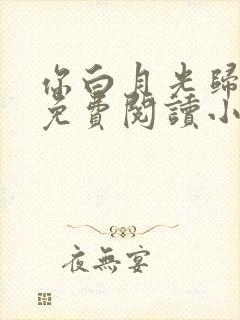 你白月光歸
免費閱讀小
夜無宴